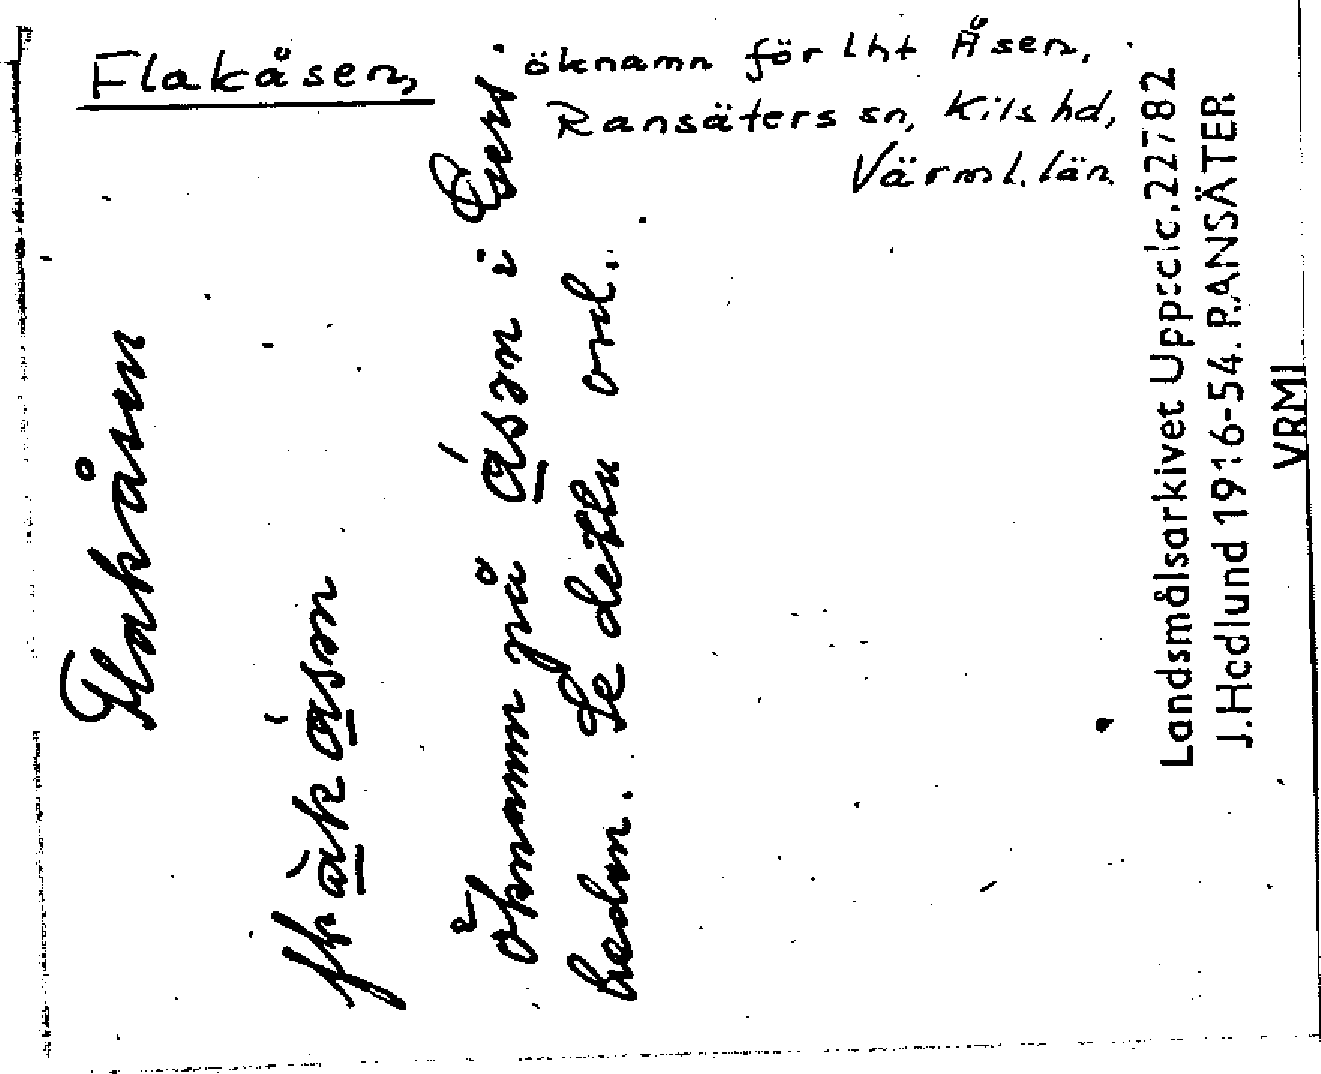 Flakåsen, öknamn för lht Åsen,
Ransäters sn, Kils hd,
Värml. län.
Flakåsen
Öknamn på åsən i Ever-
heden. Se detta ord.
Landsmålsarkivet Uppsala. 22782
J. Hedlund 1916-54. RANSÄTER
VRML